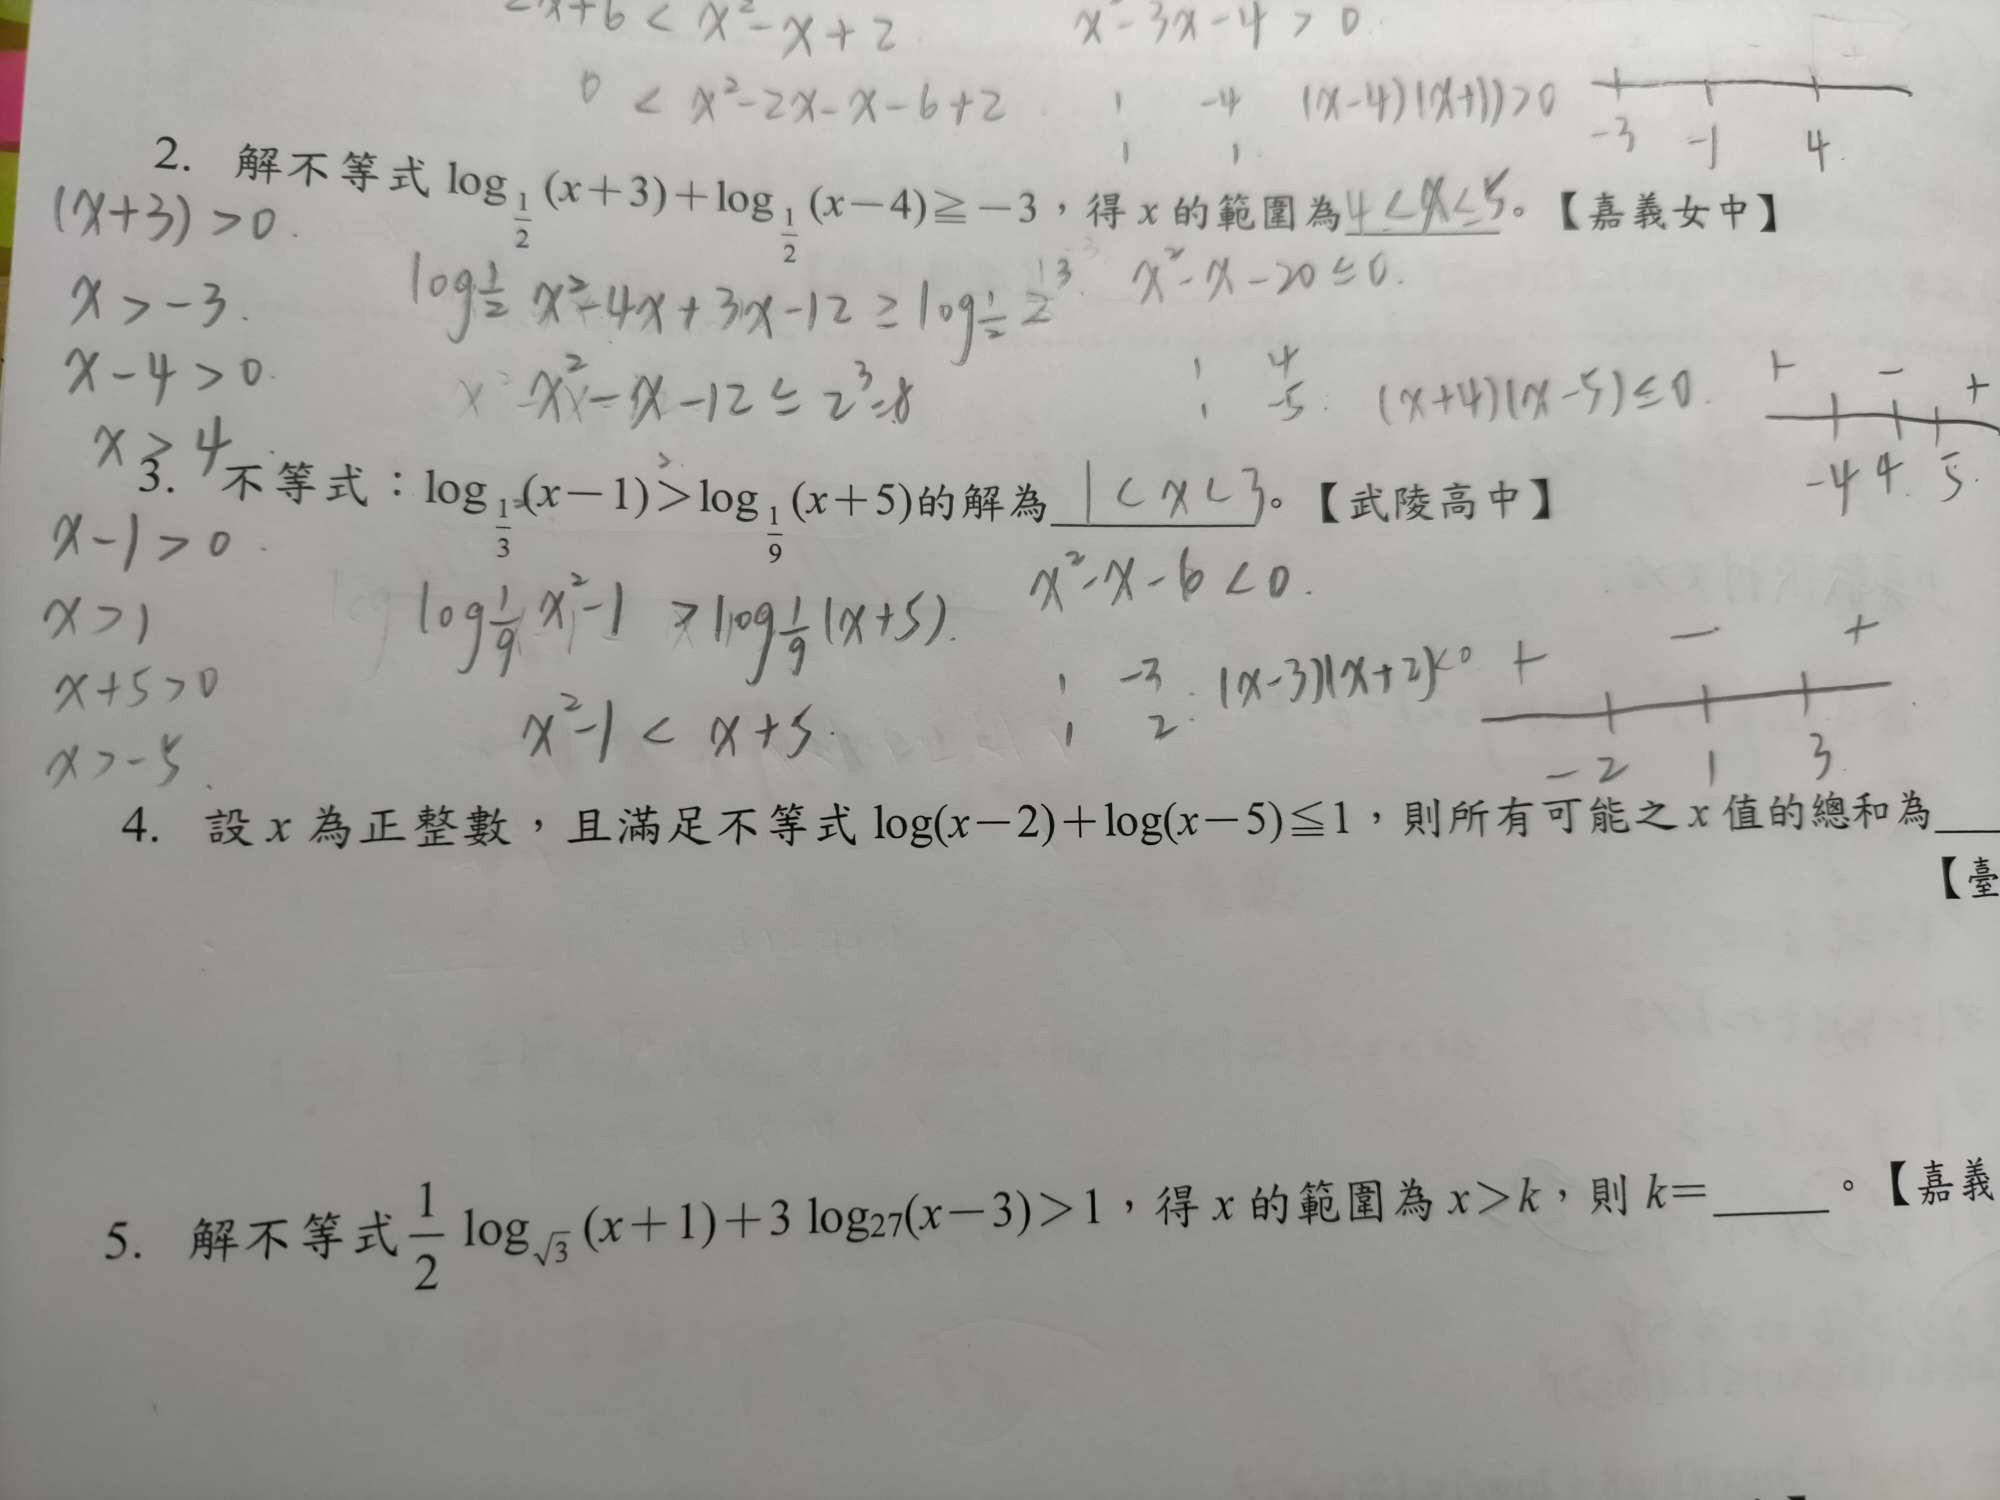 -x+6 < x²-x+2 x²-3x-4 > 0.
0 < x²-2x-x-6+2 1 -4 (x-4)(x+1)>0
1 1. -3 -1 4.
2. 解不等式 log_{1/2}(x+3)+log_{1/2}(x-4)≧-3，得 x 的範圍為 4<x≤5。【嘉義女中】
(x+3) > 0.
x > -3. log_{1/2} x²-4x+3x-12 ≥ log_{1/2} 2³ x²-x-20 ≤ 0.
x-4 > 0. x²-x-12 ≤ 2³=8 1 4 + - +
1 -5. (x+4)(x-5) ≤ 0.
x > 4 -4 4. 5.
3. 不等式：log_{1/3}(x-1)>log_{1/9}(x+5)的解為 1<x<3。【武陵高中】
x-1 > 0. x²-x-6 < 0.
x > 1 log_{1/9} x²-1 > log_{1/9}(x+5).
x+5 > 0 1 -3. (x-3)(x+2)<0 + - +
x²-1 < x+5. 1 2.
x > -5. -2 1 3.
4. 設 x 為正整數，且滿足不等式 log(x-2)+log(x-5)≦1，則所有可能之 x 值的總和為
【臺
5. 解不等式 1/2 log_{√3}(x+1)+3 log₂₇(x-3)>1，得 x 的範圍為 x>k，則 k=____。【嘉義